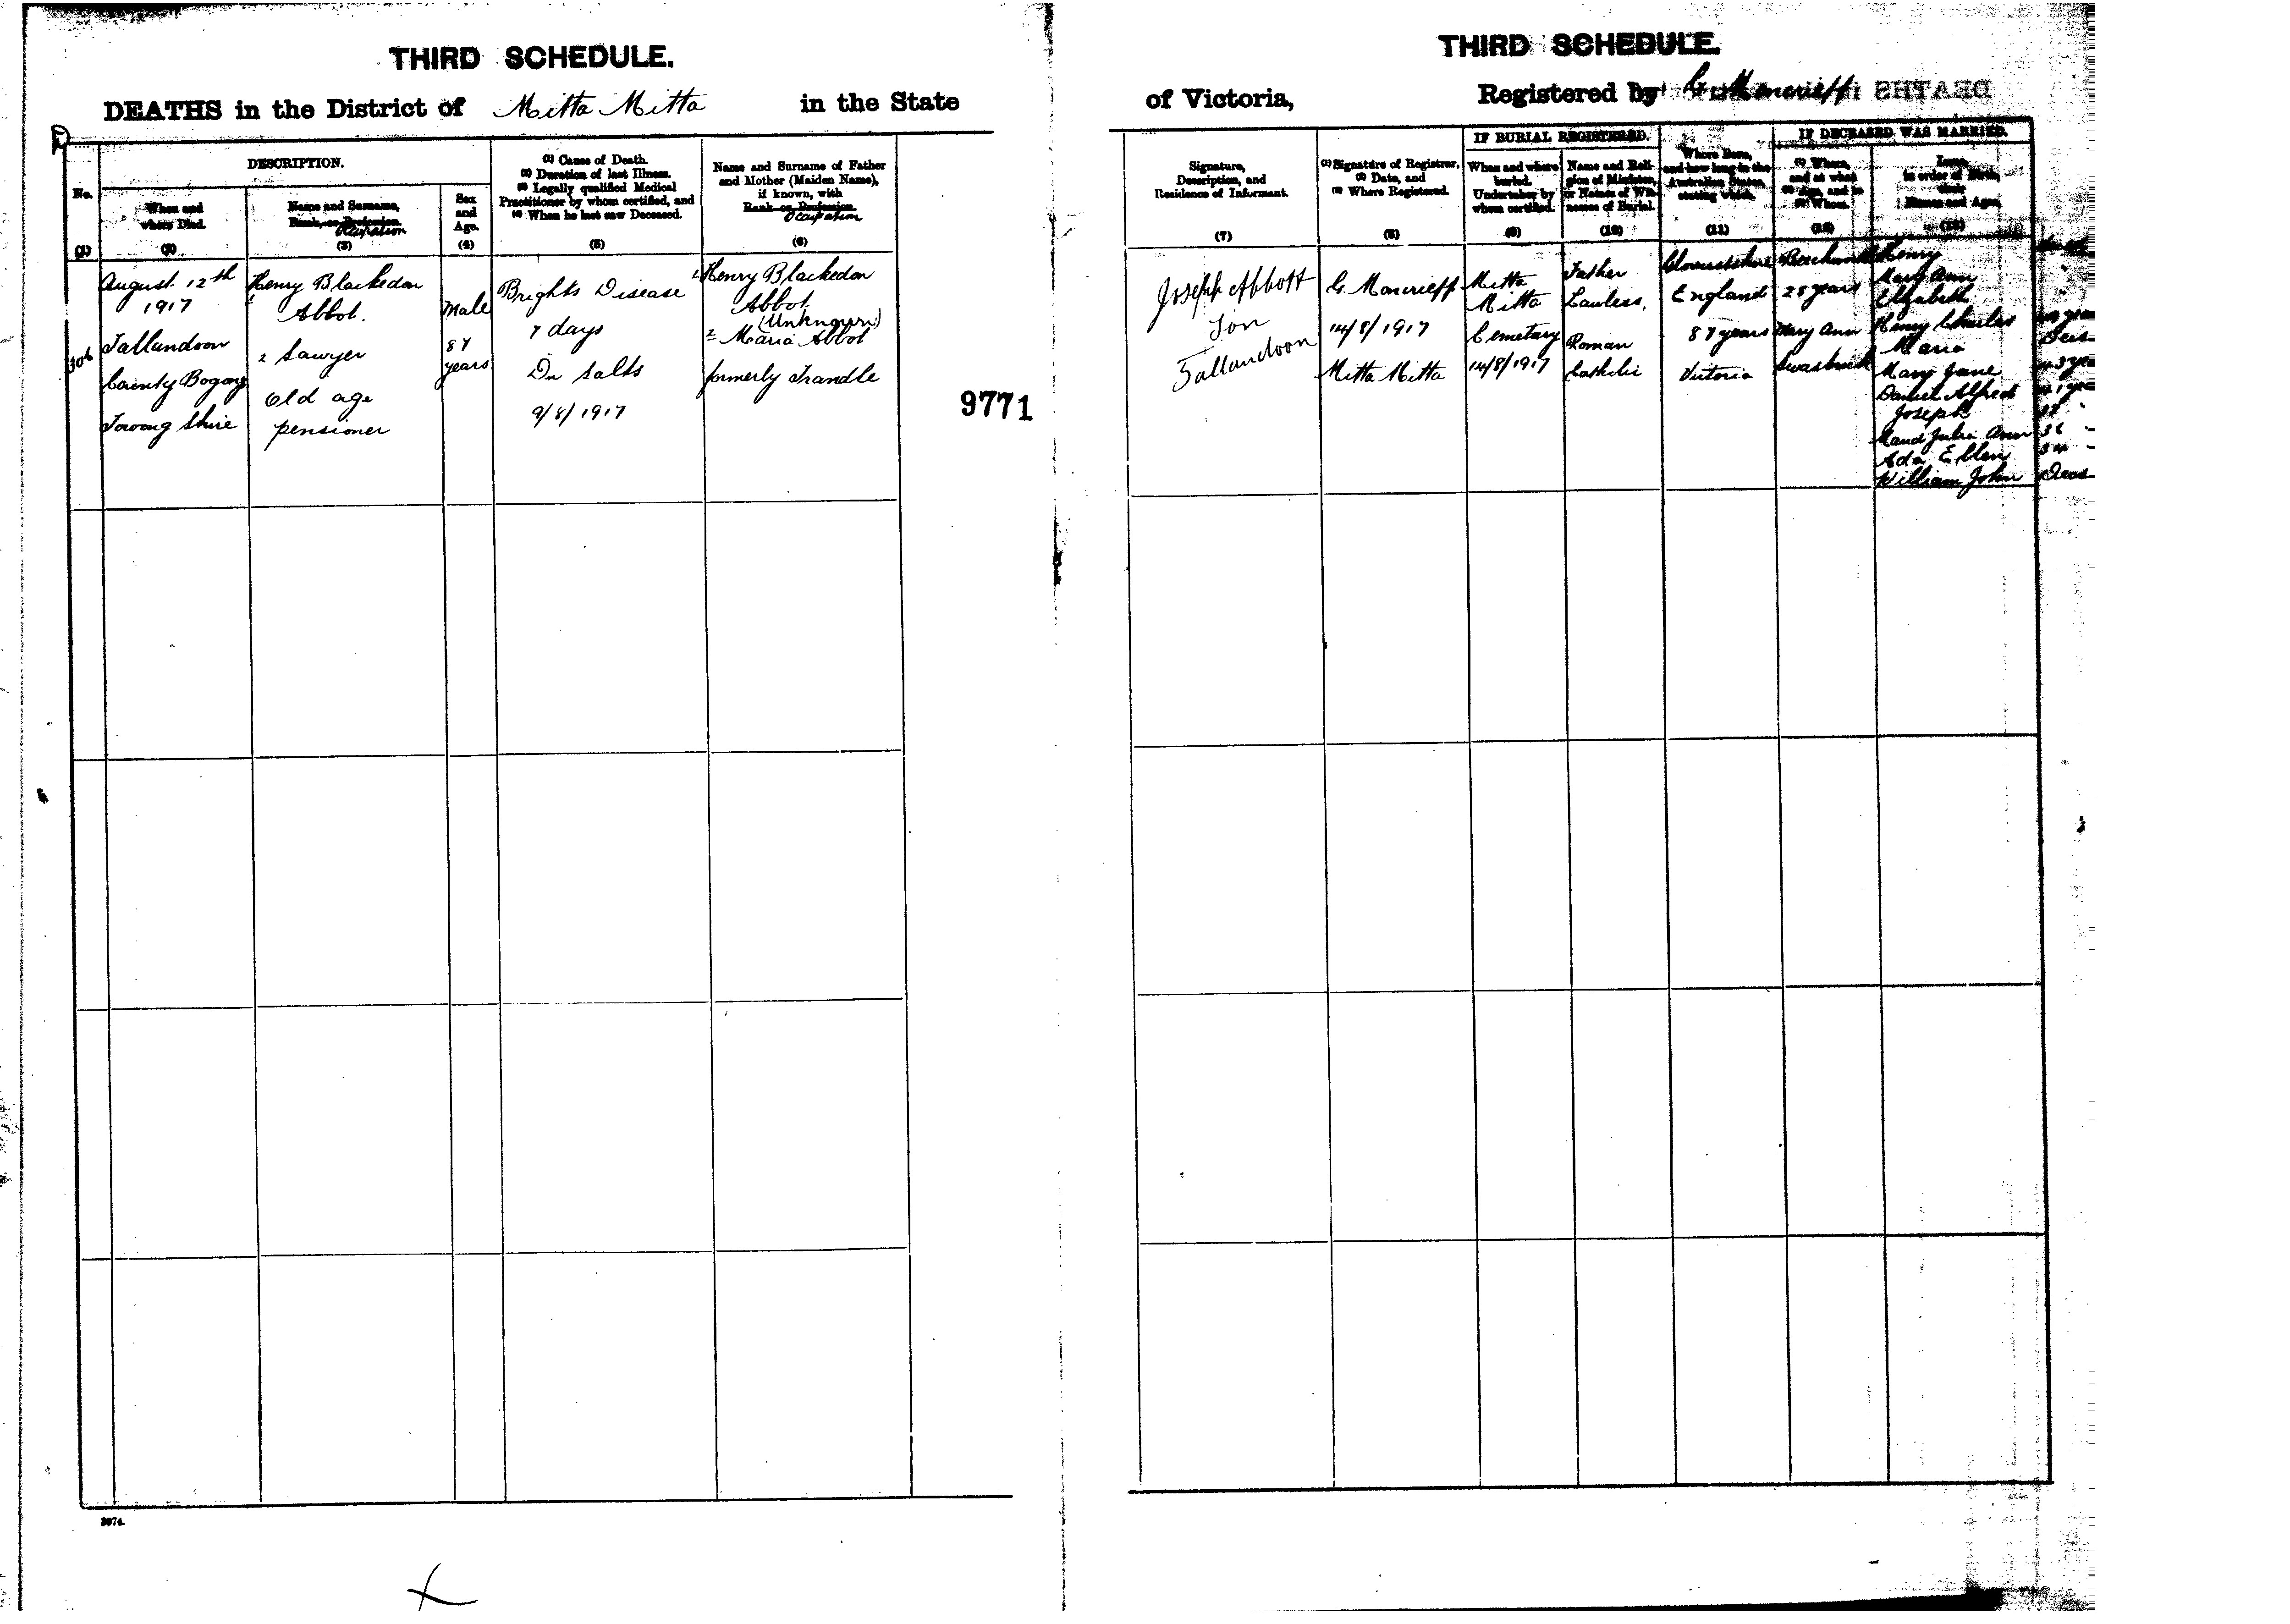 THIRD SCHEDULE.
DEATHS in the District of Mitta Mitta in the State
No.
(1)
DESCRIPTION.
When and
where Died.
(2)
Name and Surname,
Rank, or Profession.
Occupation
(3)
Sex
and
Age.
(4)
(1) Cause of Death.
(2) Duration of last Illness.
(3) Legally qualified Medical
Practitioner by whom certified, and
(4) When he last saw Deceased.
(5)
Name and Surname of Father
and Mother (Maiden Name),
if known, with
Rank or Profession.
Occupation
(6)
306
August 12th
1917
Tallandoon
County Bogong
Towong Shire
1 Henry Blackedon
Abbot.
2 Sawyer
Old age
pensioner
Male
87
years
Brights Disease
7 days
Dr Salts
9/8/1917
1 Henry Blackedon
Abbot
(Unknown)
2 Maria Abbot
formerly Trandle
9771
3974.
THIRD SCHEDULE.
of Victoria, Registered by G. Moncrieff
DEATHS
Signature,
Description, and
Residence of Informant.
(7)
(1) Signature of Registrar,
(2) Date, and
(3) Where Registered.
(8)
IF BURIAL REGISTERED.
When and where
buried.
Undertaker by
whom certified.
(9)
Name and Reli-
gion of Minister,
or Names of Wit-
nesses of Burial.
(10)
Where Born,
and how long in the
Australian States,
stating which.
(11)
IF DECEASED WAS MARRIED.
(1) Where,
and at what
(2) Age, and to
(3) Whom.
(12)
Issue,
in order of Birth,
their
Names and Ages.
(13)
Joseph Abbott
Son
Tallandoon
G. Moncrieff
14/8/1917
Mitta Mitta
Mitta
Mitta
Cemetary
14/8/1917
Father
Lawless,
Roman
Catholic
Gloucestshire
England
87 years
Victoria
Beechworth
28 years
Mary Ann
Swasbrick
Henry
Mary Ann
Elizabeth
Henry Charles
Maria Deas
Mary Jane 43 yea
Daniel Alfred 41 yea
Joseph 38
Maud Julia Ann 36 -
Ada Ellen 34 -
William John Deas